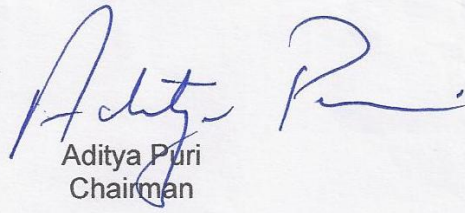 Aditya Puri
Aditya Puri
Chairman